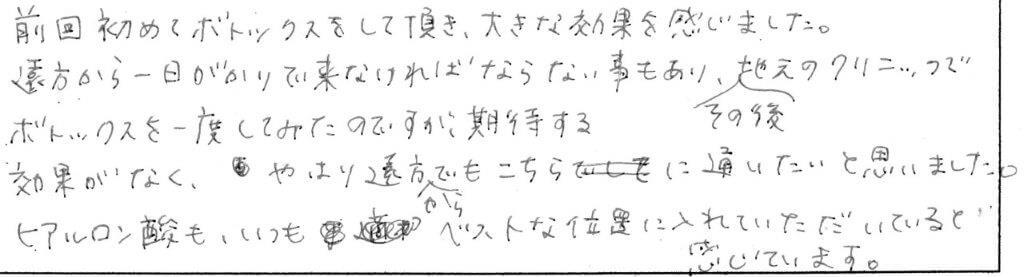 前回初めてボトックスをして頂き、大きな効果を感じました。
遠方から一日がかりで来なければならない事もあり、地元のクリニックで
その後
ボトックスを一度してみたのですが、期待する
効果がなく、やはり遠方でもこちらに通いたいと思いました。
から
ヒアルロン酸も、いつもベストな位置に入れていただいていると
感じています。